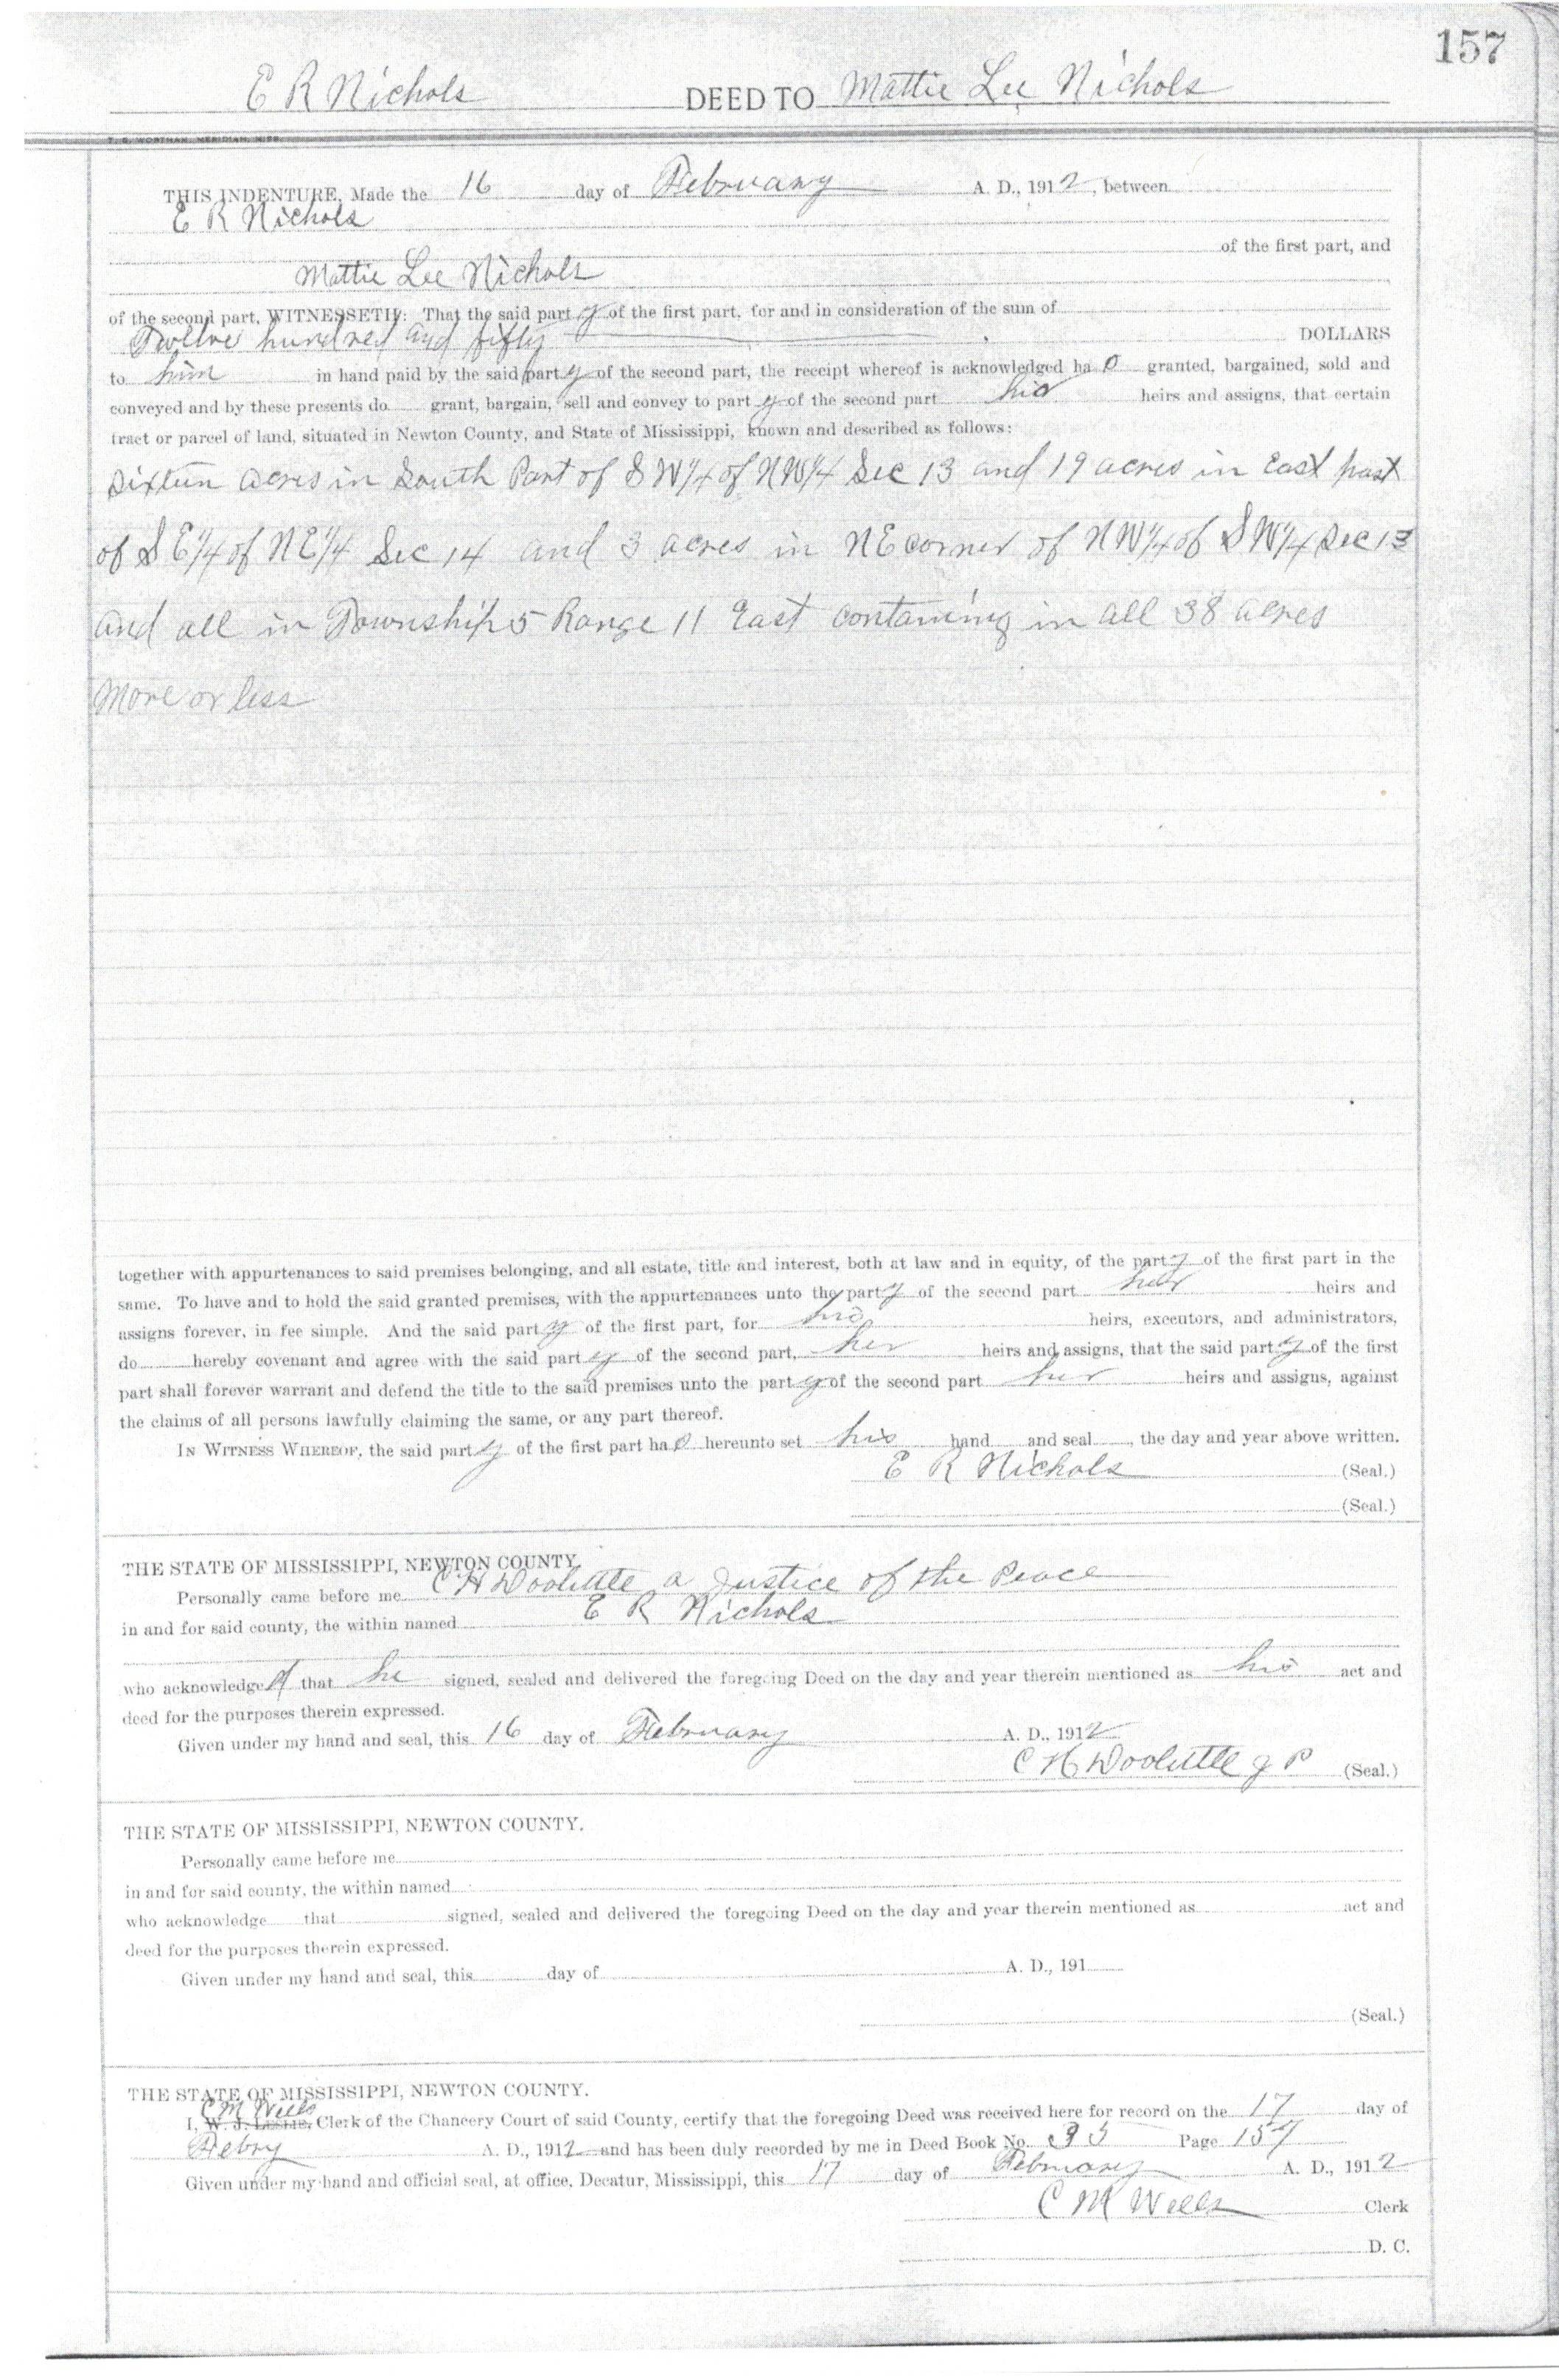 157
E R Nichols DEED TO Mattie Lee Nichols
T. G. WORTHAM, MERIDIAN, MISS.
THIS INDENTURE, Made the 16 day of February A. D., 1912, between
E R Nichols
of the first part, and
Mattie Lee Nichols
of the second part, WITNESSETH: That the said party of the first part, for and in consideration of the sum of
Twelve hundred and fifty DOLLARS
to him in hand paid by the said party of the second part, the receipt whereof is acknowledged has granted, bargained, sold and
conveyed and by these presents do grant, bargain, sell and convey to party of the second part his heirs and assigns, that certain
tract or parcel of land, situated in Newton County, and State of Mississippi, known and described as follows:
Sixteen acres in South Part of S W 1/4 of N W 1/4 Sec 13 and 19 acres in East part
of S E 1/4 of N E 1/4 Sec 14 and 3 acres in N E corner of N W 1/4 of S W 1/4 Sec 13
and all in Township 5 Range 11 East containing in all 38 acres
more or less
together with appurtenances to said premises belonging, and all estate, title and interest, both at law and in equity, of the party of the first part in the
same. To have and to hold the said granted premises, with the appurtenances unto the party of the second part her heirs and
assigns forever, in fee simple. And the said party of the first part, for his heirs, executors, and administrators,
do hereby covenant and agree with the said party of the second part, her heirs and assigns, that the said party of the first
part shall forever warrant and defend the title to the said premises unto the party of the second part her heirs and assigns, against
the claims of all persons lawfully claiming the same, or any part thereof.
IN WITNESS WHEREOF, the said party of the first part has hereunto set his hand and seal, the day and year above written.
E R Nichols (Seal.)
(Seal.)
THE STATE OF MISSISSIPPI, NEWTON COUNTY.
Personally came before me C H Doolittle a Justice of the Peace
in and for said county, the within named E R Nichols
who acknowledged that he signed, sealed and delivered the foregoing Deed on the day and year therein mentioned as his act and
deed for the purposes therein expressed.
Given under my hand and seal, this 16 day of February A. D., 1912
C H Doolittle J P (Seal.)
THE STATE OF MISSISSIPPI, NEWTON COUNTY.
Personally came before me
in and for said county, the within named
who acknowledge that signed, sealed and delivered the foregoing Deed on the day and year therein mentioned as act and
deed for the purposes therein expressed.
Given under my hand and seal, this day of A. D., 191
(Seal.)
THE STATE OF MISSISSIPPI, NEWTON COUNTY.
C M Wells
I, W. J. LESLIE, Clerk of the Chancery Court of said County, certify that the foregoing Deed was received here for record on the 17 day of
Febry A. D., 1912 and has been duly recorded by me in Deed Book No. 35 Page 157
Given under my hand and official seal, at office, Decatur, Mississippi, this 17 day of February A. D., 1912
C M Wells Clerk
D. C.